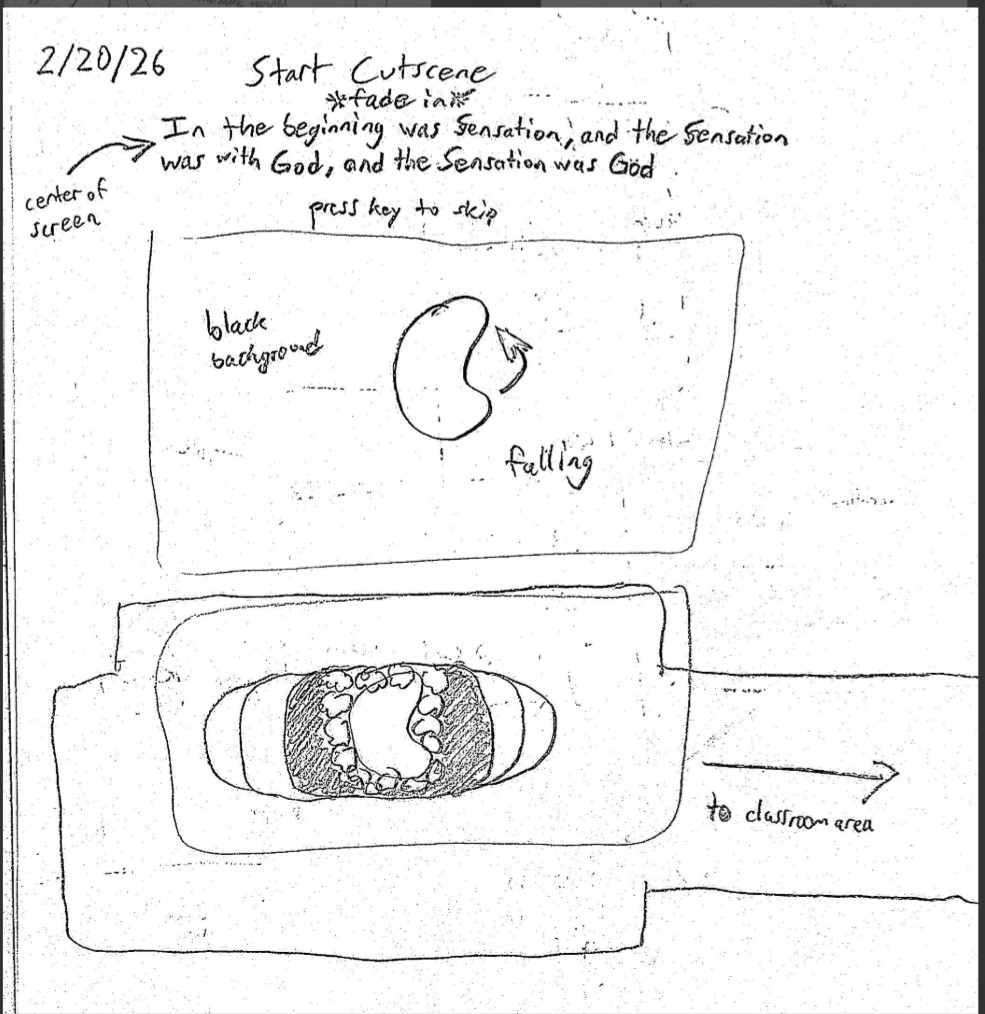 2/20/26
Start Cutscene
*fade in*
In the beginning was Sensation, and the Sensation
was with God, and the Sensation was God
center of
screen
press key to skip
black
background
falling
to classroom area